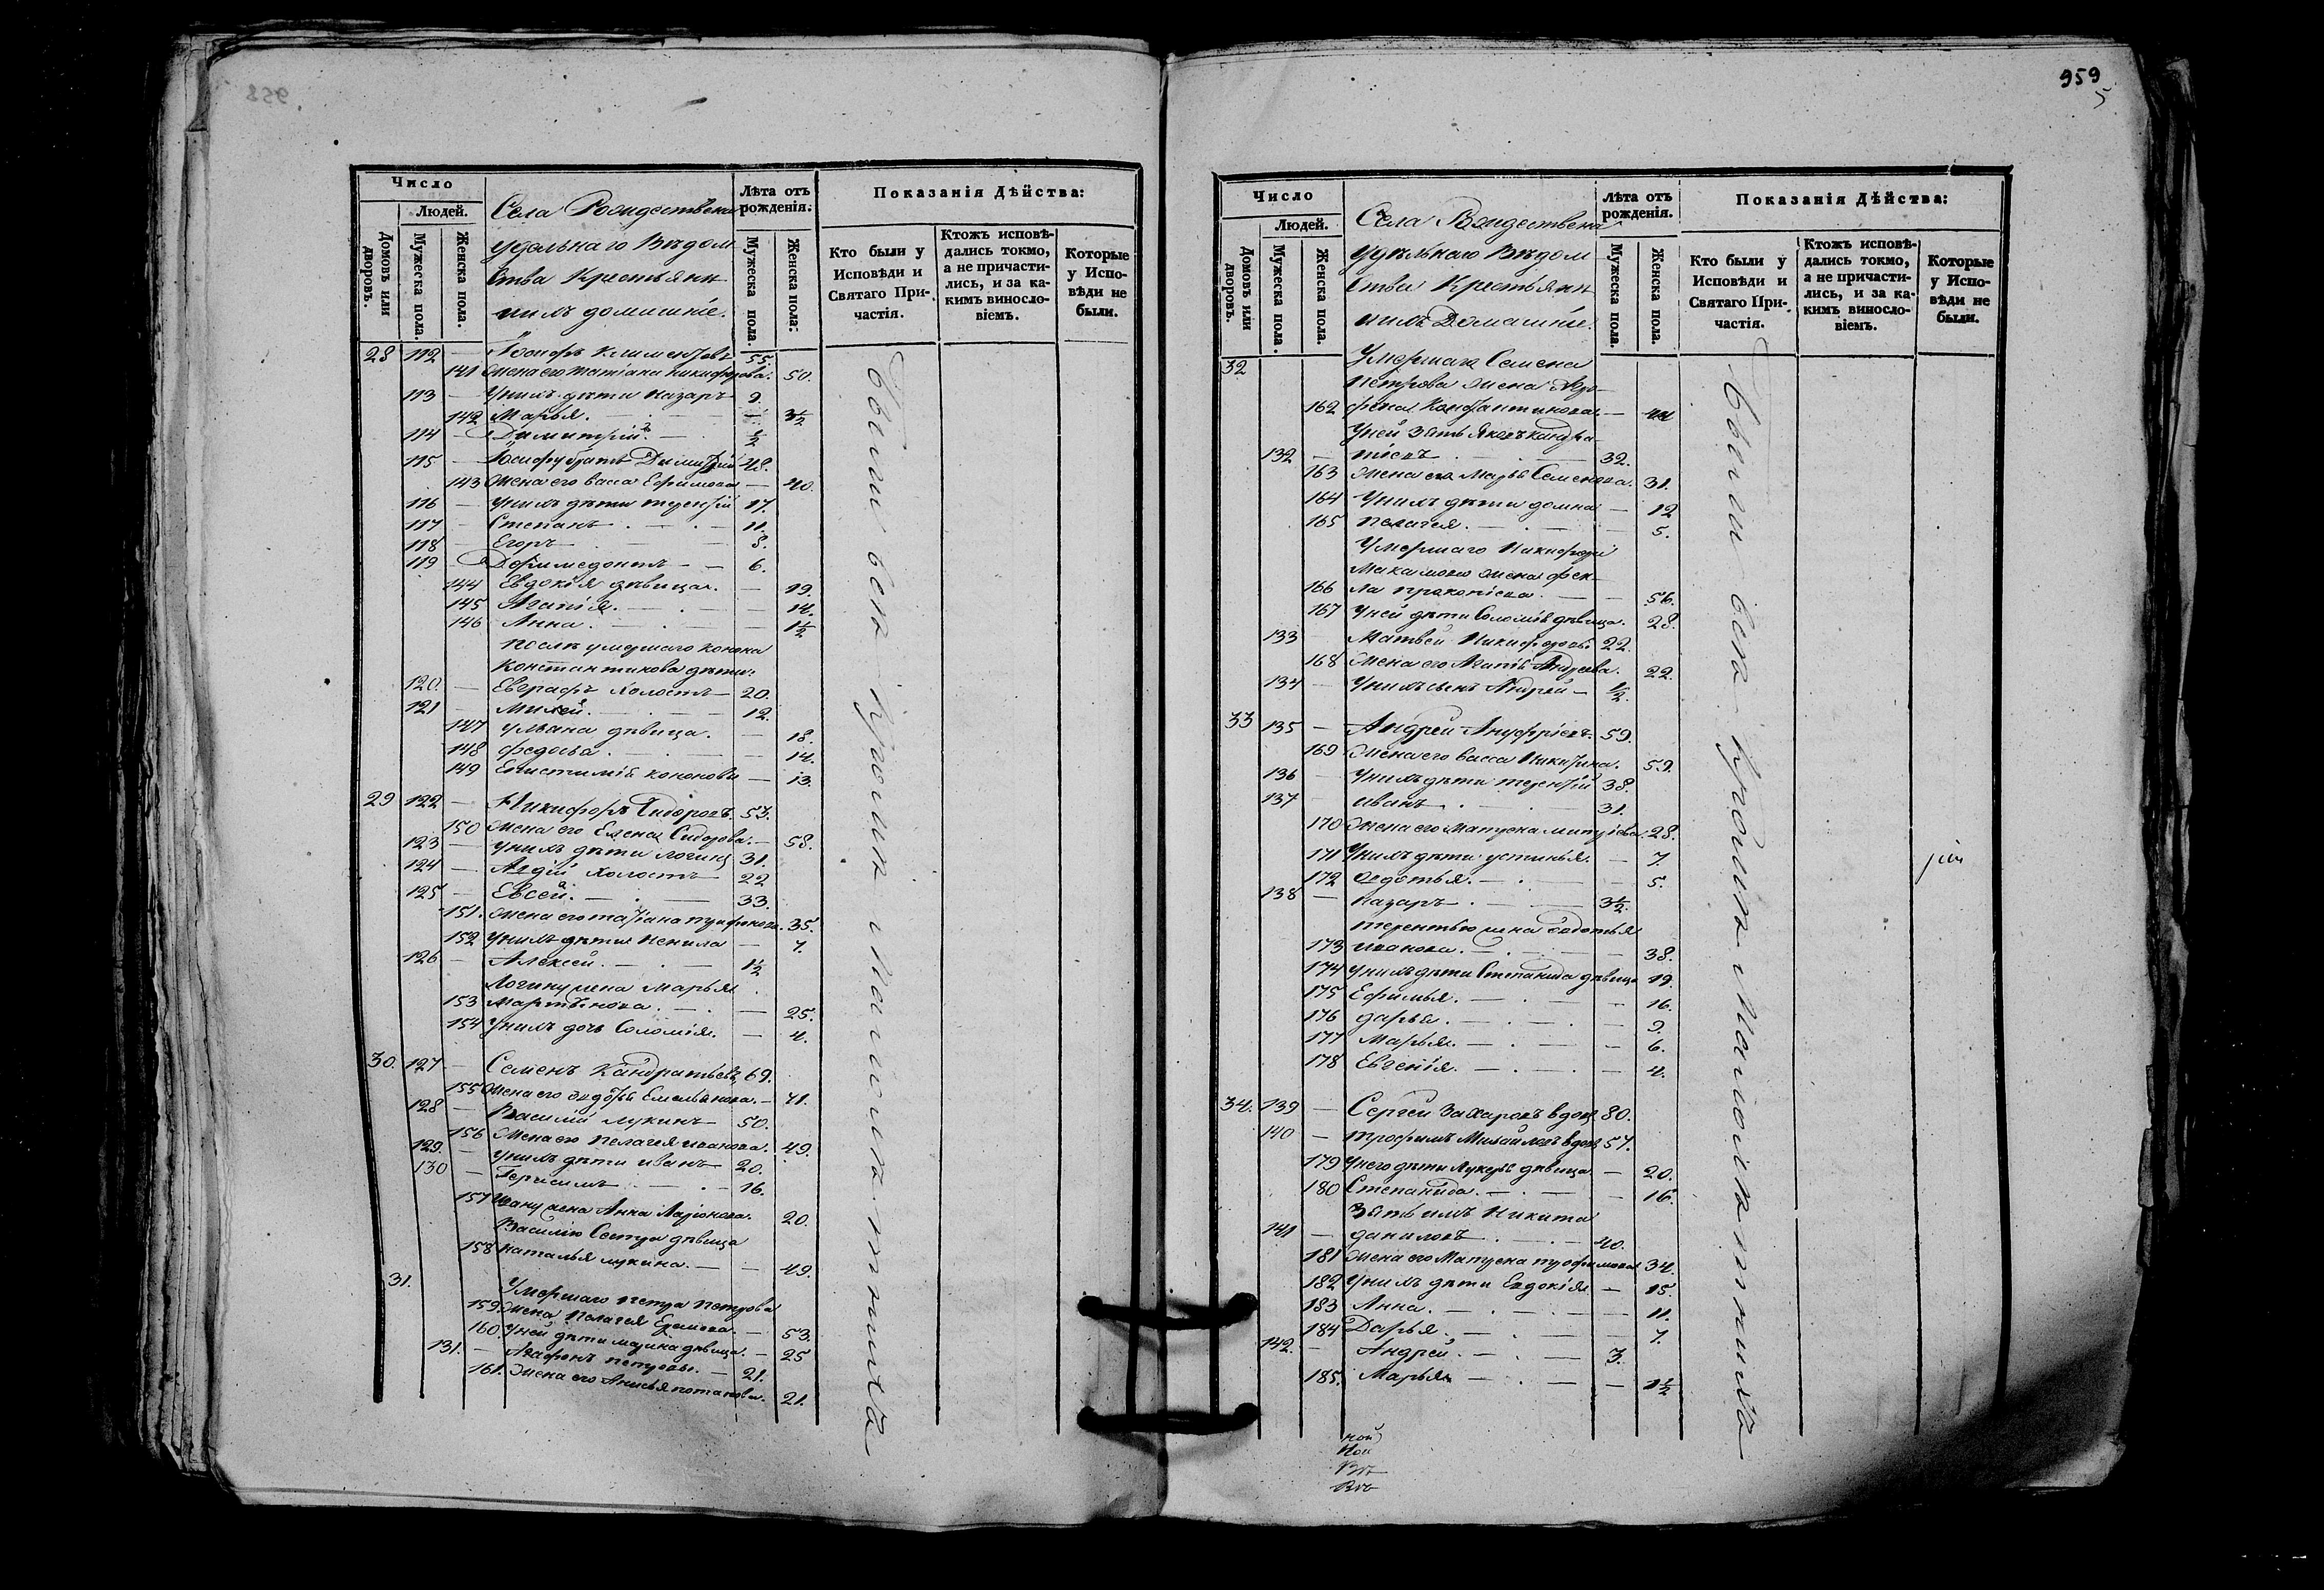 958
Число
Людей.
Домовъ или дворовъ.
Мужеска пола.
Женска пола.
Села Рождествена
удѣльнаго Вѣдом
ства Крестьяне
и ихъ домашніе.
Лѣта отъ рожденія.
Мужеска пола.
Женска пола:
Показанія Дѣйства:
Кто были у Исповѣди и Святаго Причастія.
Ктожъ исповѣдались токмо, а не причастились, и за какимъ винословіемъ.
Которые у Исповѣди не были.
28 112 — Іосифъ Климентовъ 55.
141 Жена его Татіана Никифорова. 50.
113 — У нихъ дѣти Назаръ 9.
142 Марья. — 3½
114 — Димитрій. — ½
115 — Іосифу братъ Димитрій 48.
143 Жена его Васса Ефимова — 40.
116 — У нихъ дѣти Терентій 17.
117 — Степанъ . — . — 11.
118 — Егоръ — 8.
119 — — — 6.
144 Евдокія дѣвица. — 19.
145 Агапія. — . — 14.
146 Анна. — . — 1½
Послѣ умершаго Конона
Константинова дѣти:
120. — Евграфъ холостъ — 20.
121 — — 12.
147 Ульяна дѣвица. — 18.
148 Федосья. — . — 14.
149 Епистимія Кононовы — 13.
29 122 — Никифоръ Сидоровъ. 53.
150 Жена его Елена Сидорова. — 58.
123 — У нихъ дѣти Логинъ 31.
124 — Авдій холостъ 22
125 — Евсей. — . — 33.
151. Жена его Татіана 35.
152 У нихъ дѣти Ненила — 7.
126 — Алексей. — . — 1½
Логину жена Марья
153 Мартынова. — . — 25.
154 У нихъ дочь Соломія. — 4.
30. 127 — Семенъ Кандратьевъ 69.
155 Жена его Федотья Емельянова. — 71.
128 — Василій Лукинъ — 50.
156 Жена его Пелагея Иванова. 49.
129. — У нихъ дѣти Иванъ 20.
130 — Герасимъ — . — 16.
157 Ивану жена Анна Ларіонова. 20.
Василію Сестра дѣвица
158 Наталья Лукина. — — 49.
31. Умершаго Петра Петрова
159. Жена Пелагея — 53.
160. У ней дѣти Марина дѣвица. — 25
131. — Агафонъ Петровъ. — 21.
161. Жена его Анисья Потапова. 21.
Были всѣ кромѣ малолѣтнихъ
959
5
Число
Людей.
Домовъ или дворовъ.
Мужеска пола.
Женска пола.
Села Рождествена
Удѣльнаго Вѣдом
ства Крестьяне
и ихъ Домашніе.
Лѣта отъ рожденія.
Мужеска пола.
Женска пола.
Показанія Дѣйства:
Кто были у Исповѣди и Святаго Причастія.
Ктожъ исповѣдались токмо, а не причастились, и за какимъ винословіемъ.
Которые у Исповѣди не были.
32 Умершаго Семена
Петрова жена Агро-
162 фена Константинова — 44
У ней зять Яковъ Кондра-
132 — тіевъ — 32.
163 Жена его Марья Семенова. 31.
164 У нихъ дѣти Домна — 12
165 Пелагея. — . — 5.
Умершаго Никифора
жена Фек-
166 ла Прокопіева. — — 56.
167 У ней дѣти Соломія дѣвица. 28.
133 Матвей Никифоровъ 22.
168 Жена его Агапія Андреева. 22.
134 — У нихъ сынъ Андрей — ½.
33 135 — Андрей Ануфріевъ. 59.
169 Жена его Васса Никитина. 59.
136 — У нихъ дѣти Терентій 38.
137 — Иванъ . — 31.
170 Жена его Матрена 28.
171 У нихъ дѣти Устинья. — 7.
172 Федотья. — . — 5.
138 — Назаръ — . — 3½.
Терентью жена Федотья
173 Иванова. — . — 38.
174 У нихъ дѣти Степанида дѣвица 19.
175 Ефимья. — . — 16.
176 Дарья. — . — . — 9.
177 Марья. — . — — 6.
178 Евгенія. — . — 4.
34. 139 — Сергей Захаровъ вдовъ 80.
140 — Трофимъ Михайловъ вдовъ 57.
179 У него дѣти Лукерья дѣвица — 20.
180 Степанида. — . — 16.
Зять ихъ Никита
141 — Даниловъ — 40.
181 Жена его Матрена Трофимова 34.
182 У нихъ дѣти Евдокія — 15.
183 Анна. — . — . — 11.
184 Дарья. — . — 7.
142. — Андрей. — . — 3.
185. Марья. — . — 1½
Были всѣ кромѣ малолѣтнихъ